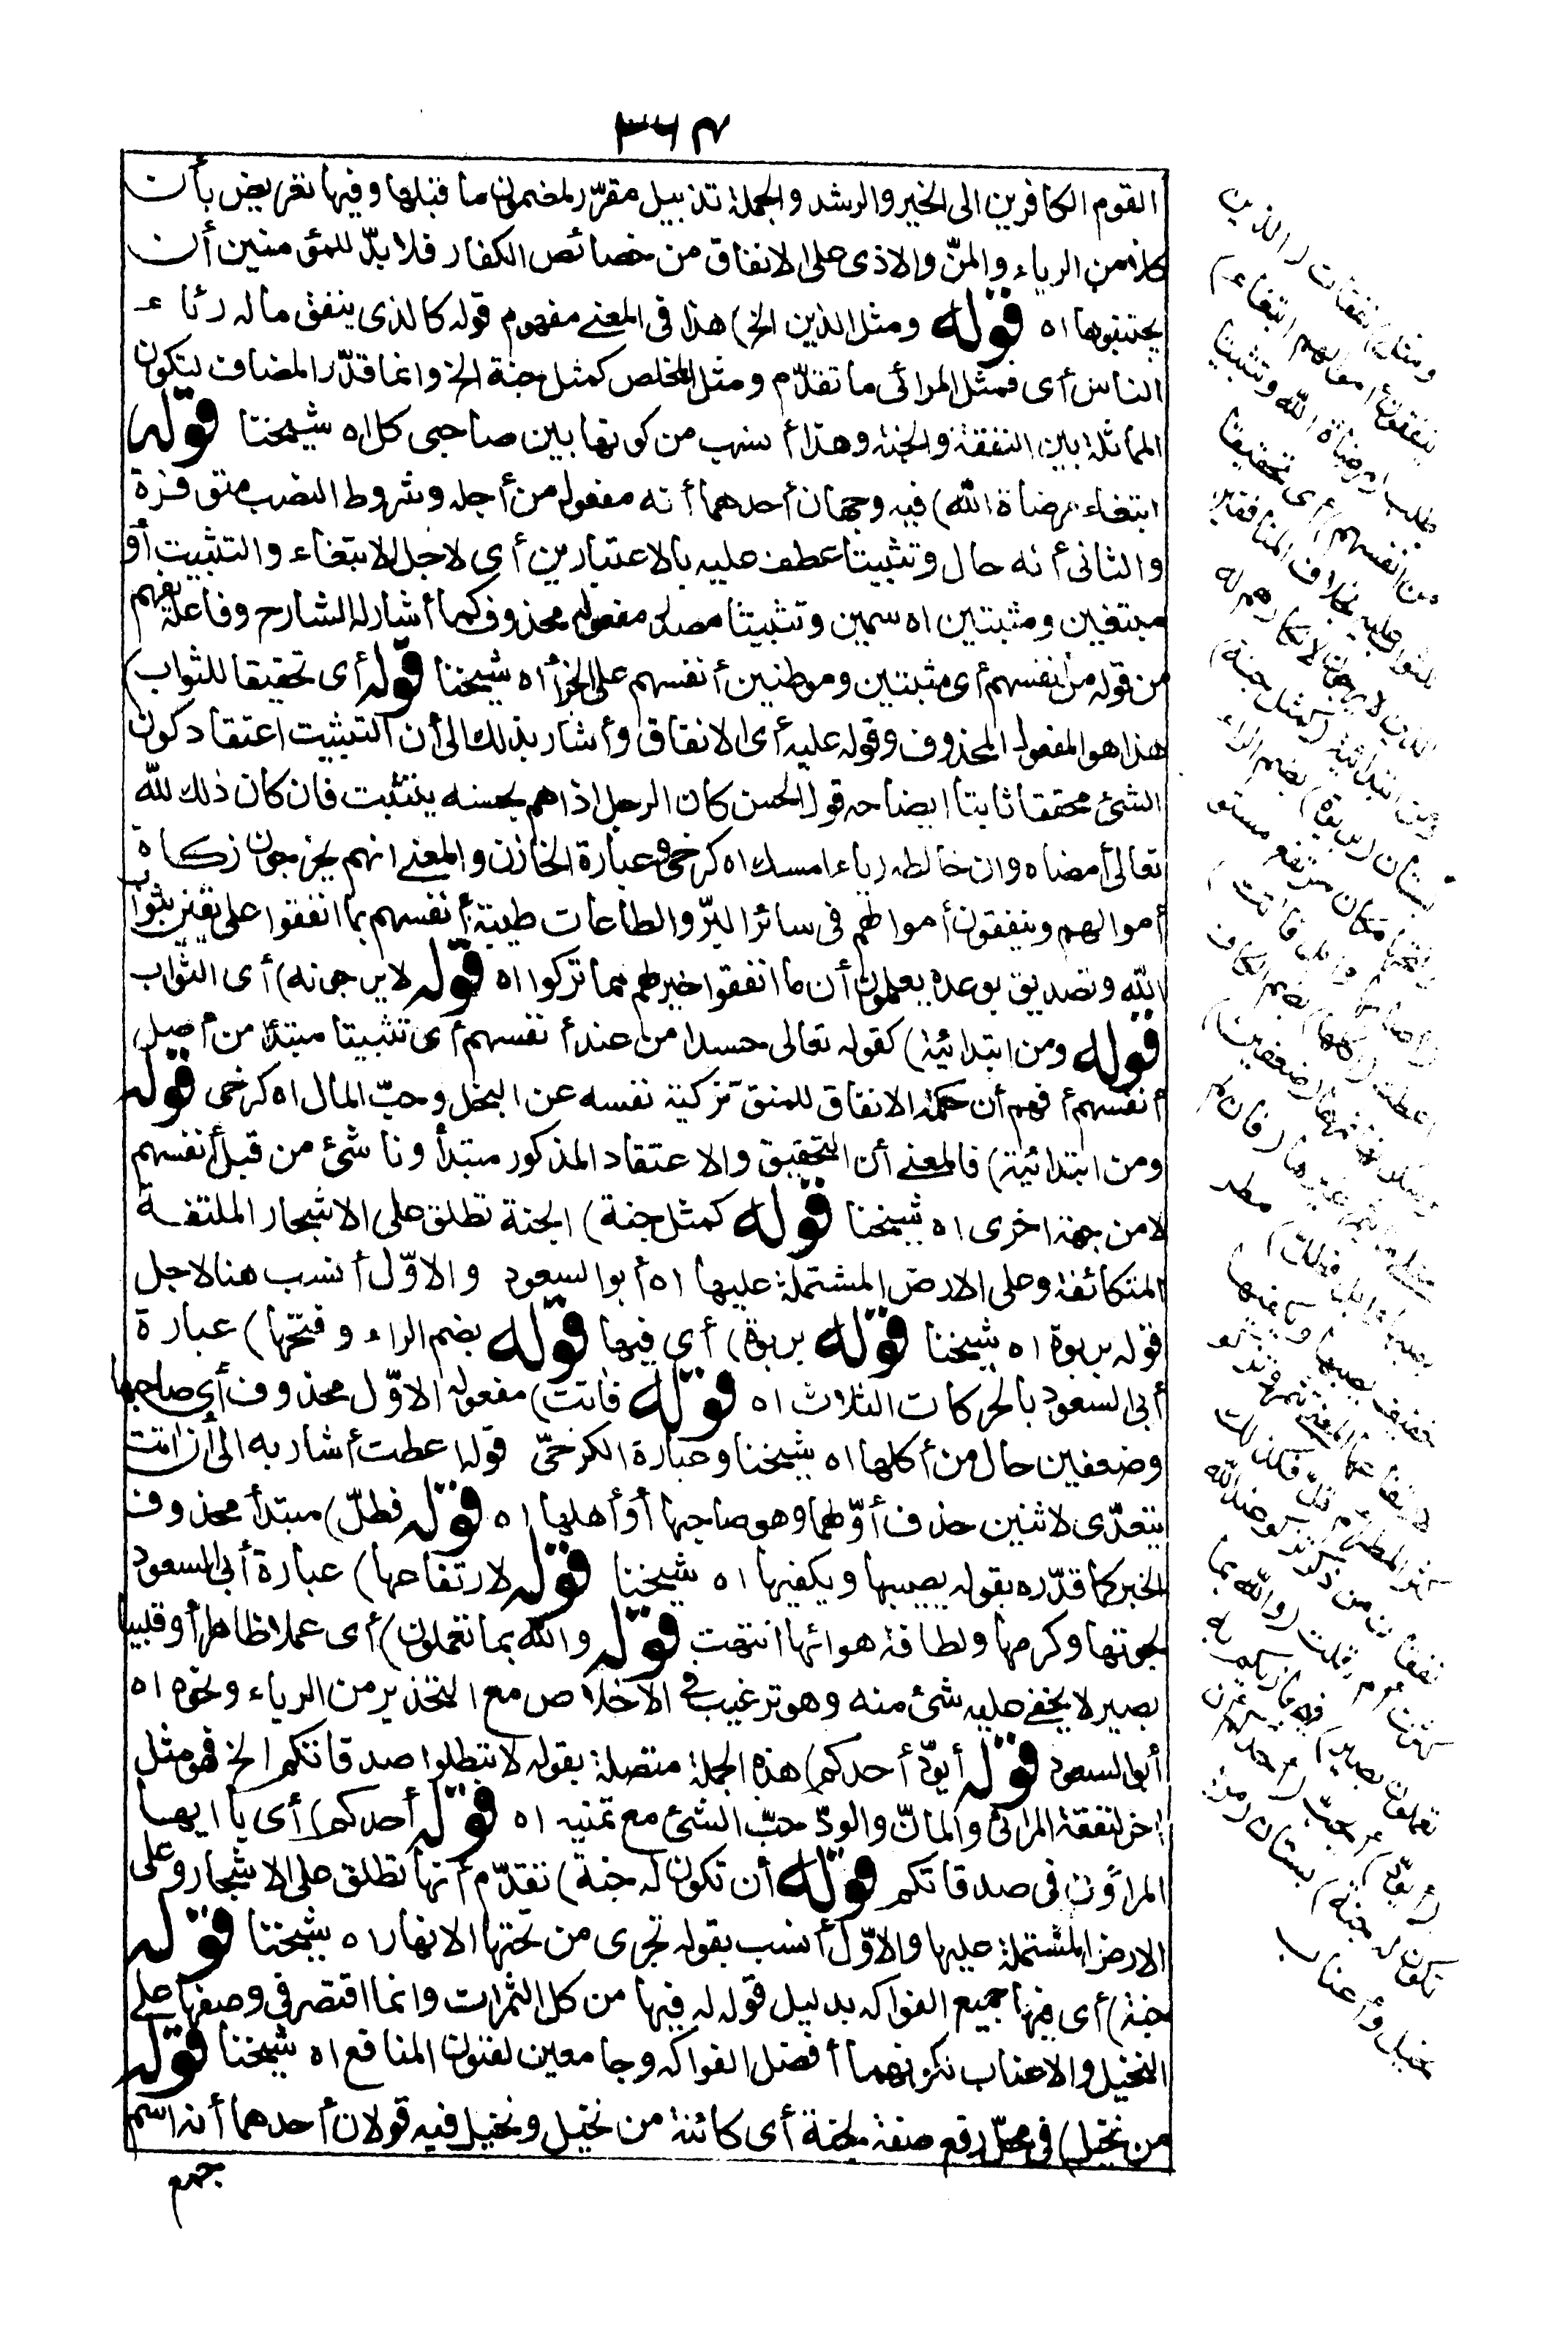 ٣٦٣
القوم الكافرين الى الخير والرشد والجملة تذييل مقرّر لمضمون ما قبلها وفيها تعريض بأن
كلا من الرياء والمنّ والاذى على الانفاق من خصائص الكفار فلا بدّ للمؤمنين أن
يجتنبوها اه قوله ومثل الذين الخ) هذا فى المعنى مفهوم قوله كالذى ينفق ماله رئاء
الناس أى فمثل المرائى ما تقدّم ومثل المخلص كمثل جنة الخ وانما قدّر المضاف لتكون
المماثلة بين النفقة والجنة وهذا أنسب من كونها بين صاحبى كل اه شيخنا قوله
ابتغاء مرضاة الله) فيه وجهان أحدهما أنه مفعول من أجله وشروط النصب متوفرة
والثانى أنه حال وتثبيتا عطف عليه بالاعتبارين أى لاجل الابتغاء والتثبيت أو
مبتغين ومثبتين اه سمين وتثبيتا مصدر مفعوله محذوف كما أشار له الشارح وفاعله يفهم
من قوله من أنفسهم أى مثبتين وموطنين أنفسهم على الجزأ اه شيخنا قوله أى تحقيقا للثواب)
هذا هو المفعول المحذوف وقوله عليه أى الانفاق وأشار بذلك الى أن التثبيت اعتقاد كون
الشئ محققا ثابتا ايضاحه قول الحسن كان الرجل اذا هم بحسنه يتثبت فان كان ذلك لله
تعالى أمضاه وان خالطه رياء امسك اه كرخى وعبارة الخازن والمعنى انهم يخرجون زكاة
أموالهم وينفقون أموالهم فى سائر البرّ والطاعات طيبة أنفسهم بما انفقوا على يقين بثواب
الله وتصديق بوعده يعلمون أن ما انفقوا خير لهم مما تركوا اه قوله لا يرجونه) أى الثواب
قوله ومن ابتدائية) كقوله تعالى حسدا من عند أنفسهم أى تثبيتا مبتدأ من أصل
أنفسهم أفهم أن حكمة الانفاق للمنفق تزكية نفسه عن البخل وحبّ المال اه كرخى قوله
ومن ابتدائية) فالمعنى أن التحقيق والاعتقاد المذكور مبتدأ وناشئ من قبل أنفسهم
لا من جهة اخرى اه شيخنا قوله كمثل جنة) الجنة تطلق على الاشجار الملتفة
المتكاثفة وعلى الارض المشتملة عليها اه أبو السعود والاوّل أنسب هنا لاجل
قوله بربوة اه شيخنا قوله بربوة) أى فيها قوله بضم الراء وفتحها) عبارة
أبى السعود بالحركات الثلاث اه قوله فاتت) مفعوله الاوّل محذوف أى صاحبها
وضعفين حال من أكلها اه شيخنا وعبارة الكرخىّ قوله اعطت أشار به الى أن اتت
يتعدّى لاثنين حذف أوّلهما وهو صاحبها أو أهلها اه قوله فطلّ) مبتدأ محذوف
الخبر كما قدّره بقوله يصيبها ويكفيها اه شيخنا قوله لارتفاعها) عبارة أبى السعود
لجودتها وكرمها ولطافة هوائها انتهت قوله والله بما تعملون) أى عملا ظاهرا أو قلبيا
بصير لا يخفى عليه شئ منه وهو ترغيب فى الاخلاص مع التحذير من الرياء ونحوه اه
أبو السعود قوله أيودّ أحدكم) هذه الجملة متصلة بقوله لا تبطلوا صدقاتكم الخ فهو مثل
اخر لنفقة المرائى والمانّ والودّ حبّ الشئ مع تمنيه اه قوله أحدكم) أى يا ايها
المراؤن فى صدقاتكم قوله أن تكون له جنة) تقدّم أنها تطلق على الاشجار وعلى
الارض المشتملة عليها والاوّل أنسب بقوله تجرى من تحتها الانهار اه شيخنا قوله
جنة) أى فيها جميع الفواكه بدليل قوله له فيها من كل الثمرات وانما اقتصر فى وصفها على
النخيل والاعناب لكونهما أفضل الفواكه وجامعين لفنون المنافع اه شيخنا قوله
من نخيل) فى محل رفع صفة لجنة أى كائنة من نخيل ونخيل فيه قولان أحدهما أنه اسم
جمع
ومثل) نفقات (الذين
ينفقون أموالهم ابتغاء)
طلب (مرضاة الله وتثبيتا
من أنفسهم) أى تحقيقا
للثواب عليه بخلاف المنافقين
الذين لا يرجونه لانكارهم له
ومن ابتدائية (كمثل جنة)
بستان (بربوة) بضم الراء
وفتحها مكان مرتفع مستو
(أصابها وابل فاتت)
أعطت (أكلها) بضم الكاف
وسكونها ثمرها (ضعفين)
مثلى ما يثمر غيرها (فان لم
يصبها وابل فطلّ) مطر
خفيف يصيبها ويكفيها
لارتفاعها المعنى تثمر وتزكو
كثر المطر أم قلّ فكذلك
نفقات من ذكر تزكو عند الله
كثرت أم قلت (والله بما
تعملون بصير) فيجازيكم به
(أيودّ) أيحبّ (أحدكم أن
تكون له جنة) بستان (من
نخيل وأعناب